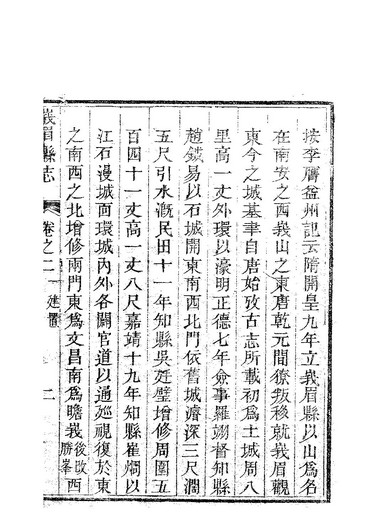 按李膺益州記云隋開皇九年立峩眉縣以山爲名
在南安之西峩山之東唐乾元間獠叛移就峩眉觀
東今之城基聿自唐始攷古志所載初爲土城周八
里高一丈外環以濠明正德七年僉事羅翊督知縣
趙鉞易以石城開東南西北門依舊城濬深三尺濶
五尺引水漑民田十一年知縣吳廷璧增修周圍五
百四十一丈高一丈八尺嘉靖十九年知縣崔燗以
江石漫城面環城內外各闢官道以通巡視復於東
之南西之北增修兩門東爲文昌南爲瞻峩後改勝峯西
峩眉縣志
卷之二
建置
二